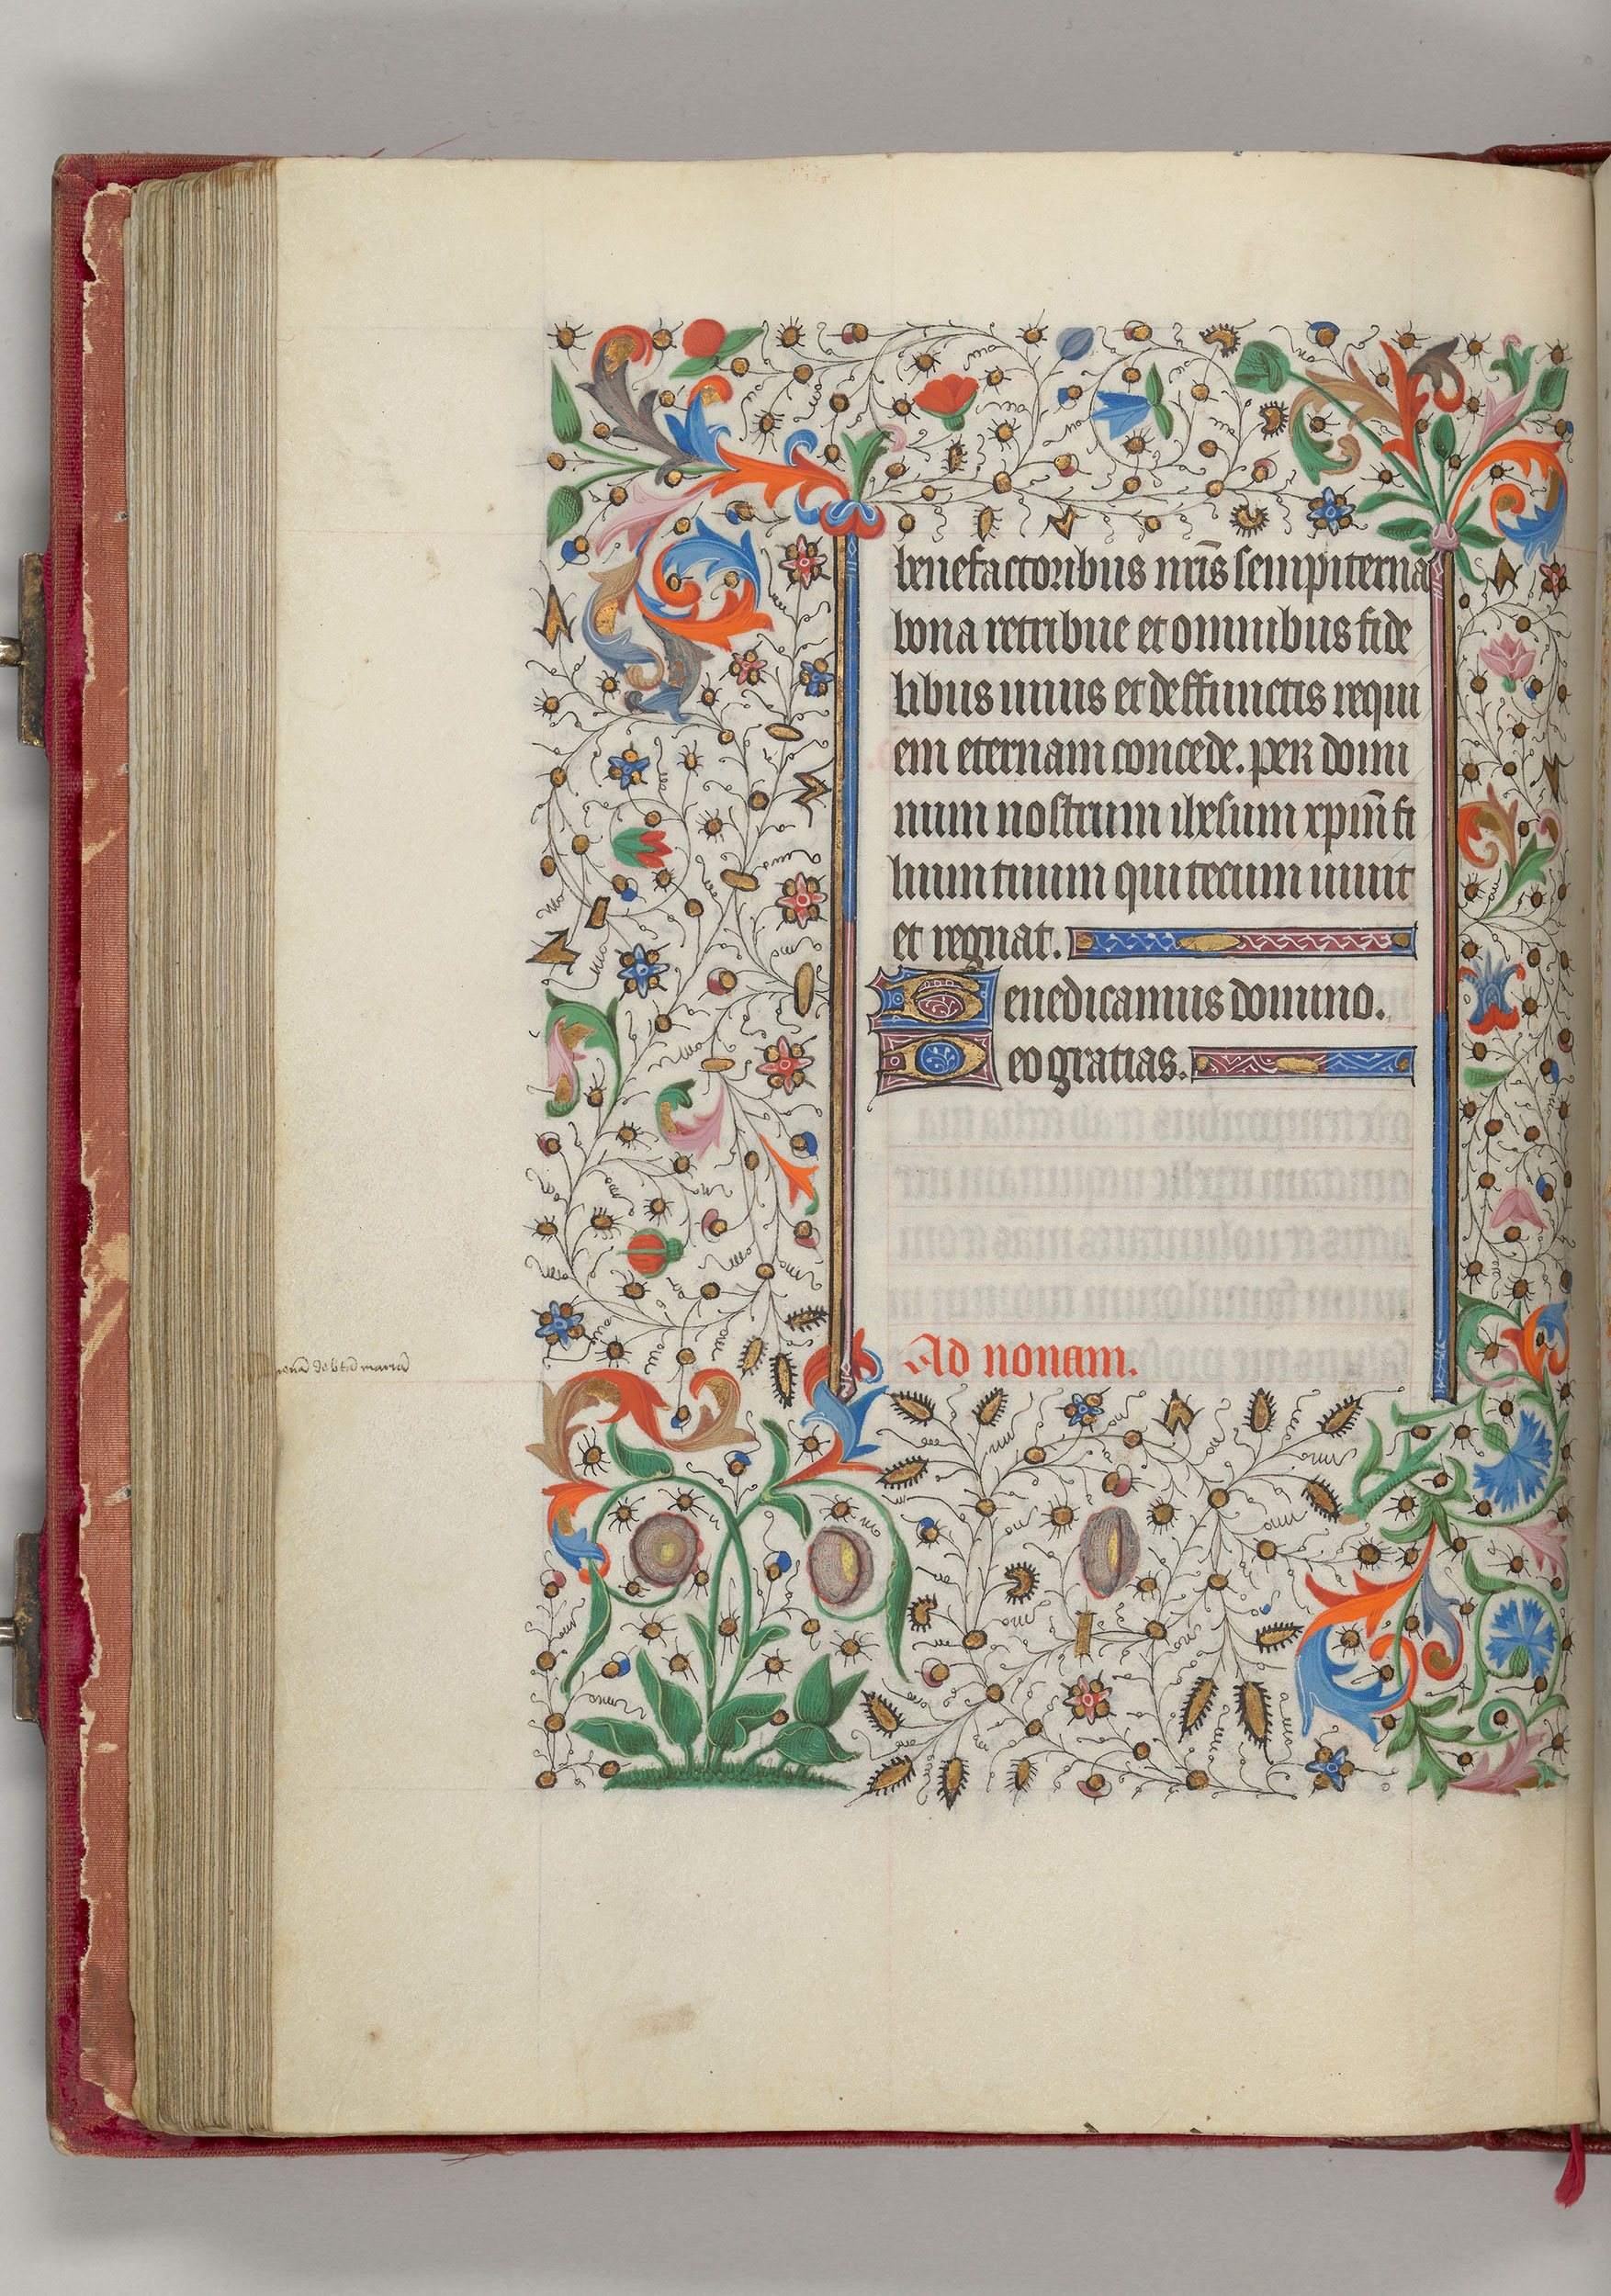 benefactoribus nr̄is sempiterna
bona retribue et omnibus fide
libus uiuis et deffunctis requi
em eternam concede. per domi
num nostrum ihesum xpm̄ fi
lium tuum qui tecum uiuit
et regnat.
Benedicamus domino.
Deo gratias.
Ad nonam.